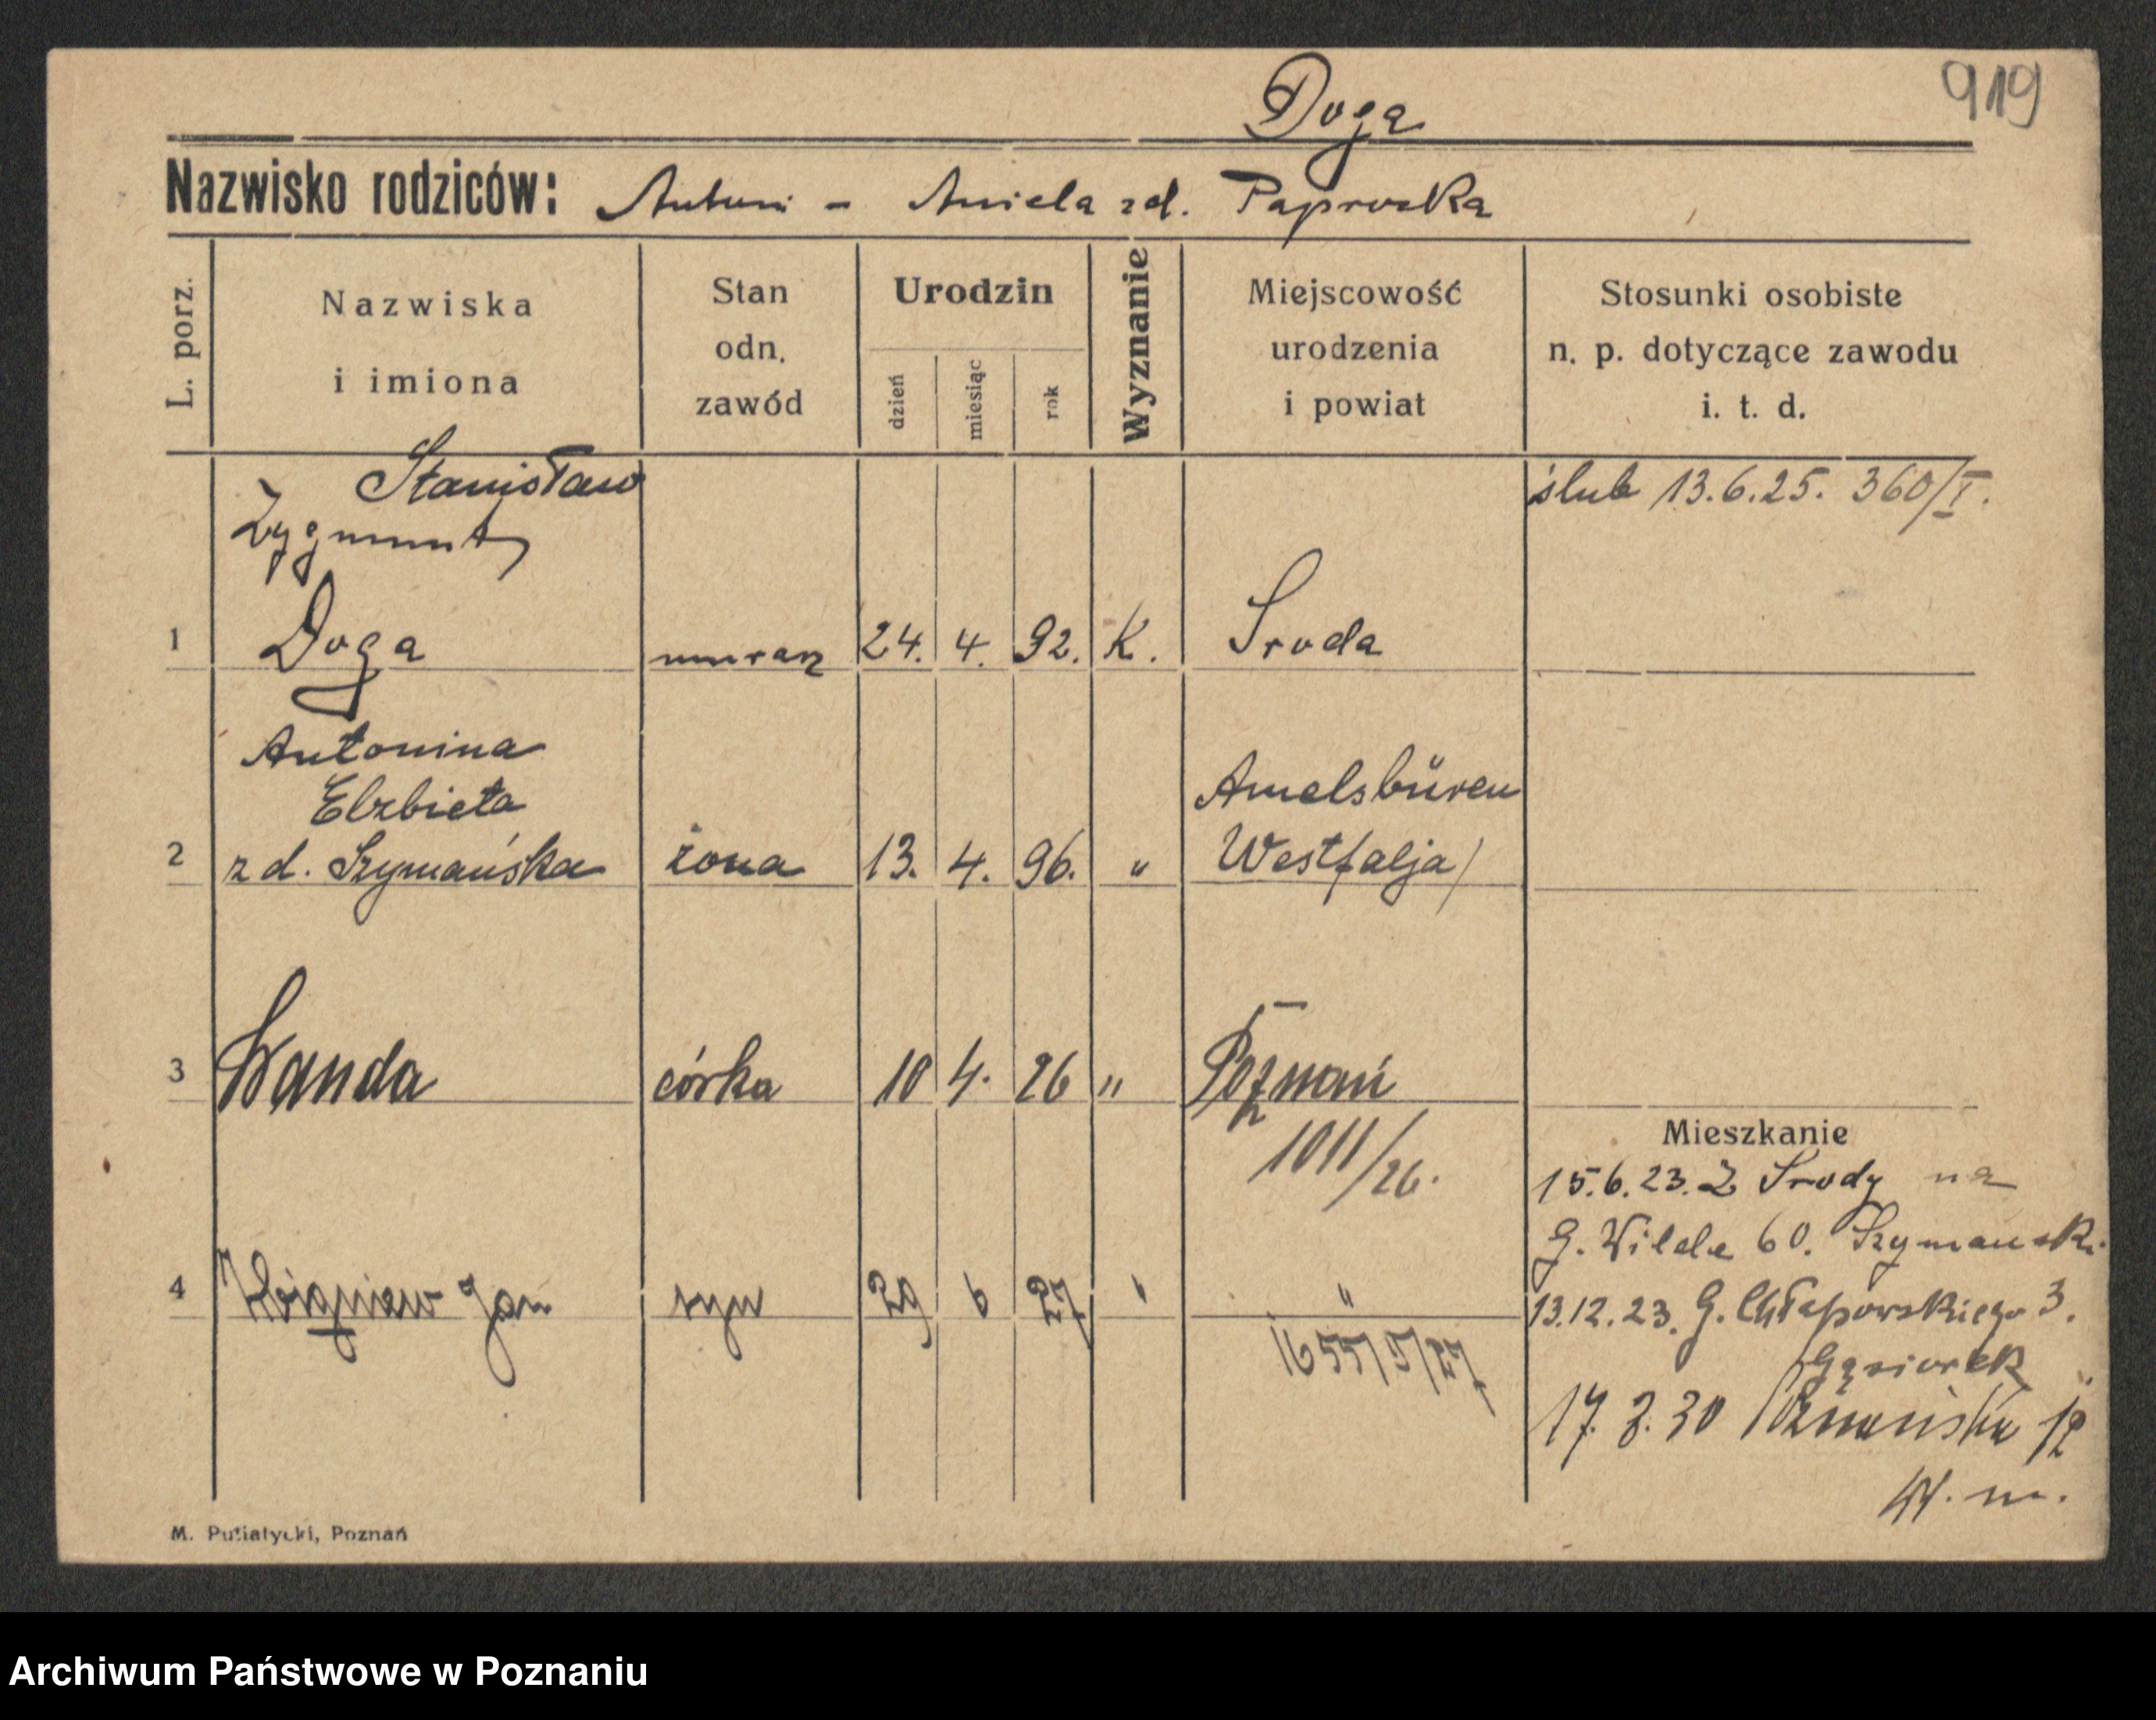 Doga
919
Nazwisko rodziców: Antoni - Aniela zd. Paprocka
L. porz.
Nazwiska
i imiona
Stan
odn.
zawód
Urodzin
dzień
miesiąc
rok
Wyznanie
Miejscowość
urodzenia
i powiat
Stosunki osobiste
n. p. dotyczące zawodu
i. t. d.
Stanisław
Zygmunt
ślub 13.6.25. 360/I.
1 Doga murarz 24. 4. 92. K. Sroda
Antonina
Elzbieta
Amelsbüren
2 zd. Szymańska żona 13. 4. 96. " Westfalja/
3 Wanda córka 10 4. 26 " Poznań
1011/26.
4 Zbigniew Jan syn 29 6 27 " "
1655/5/27
Mieszkanie
15.6.23. Z Srody na
G. Wilde 60. Szymanski
13.12.23. G. Chłapowskiego 3.
Gąsiorek
17. 3. 30 Poznańska 12
W. m.
M. Putiatycki, Poznań
Archiwum Państwowe w Poznaniu